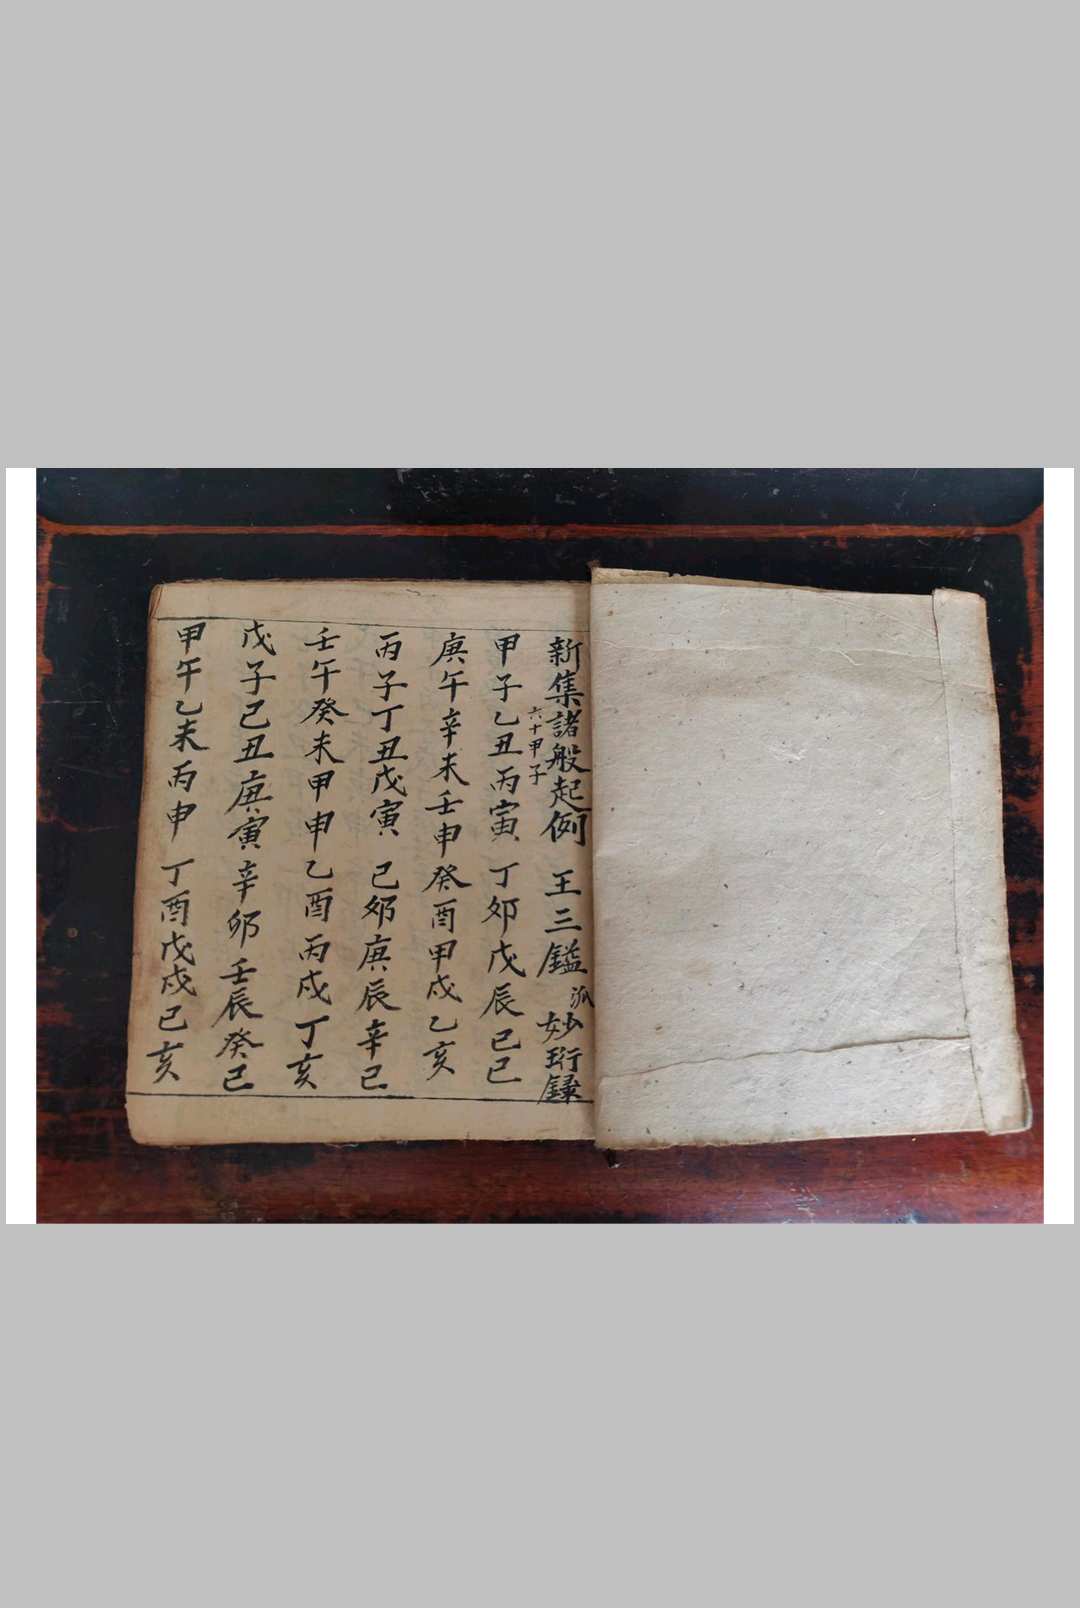 新集諸般起例 王三鎰 派妙珩錄
六十甲子
甲子乙丑丙寅丁卯戊辰己巳
庚午辛未壬申癸酉甲戌乙亥
丙子丁丑戊寅己卯庚辰辛巳
壬午癸未甲申乙酉丙戌丁亥
戊子己丑庚寅辛卯壬辰癸巳
甲午乙未丙申丁酉戊戌己亥